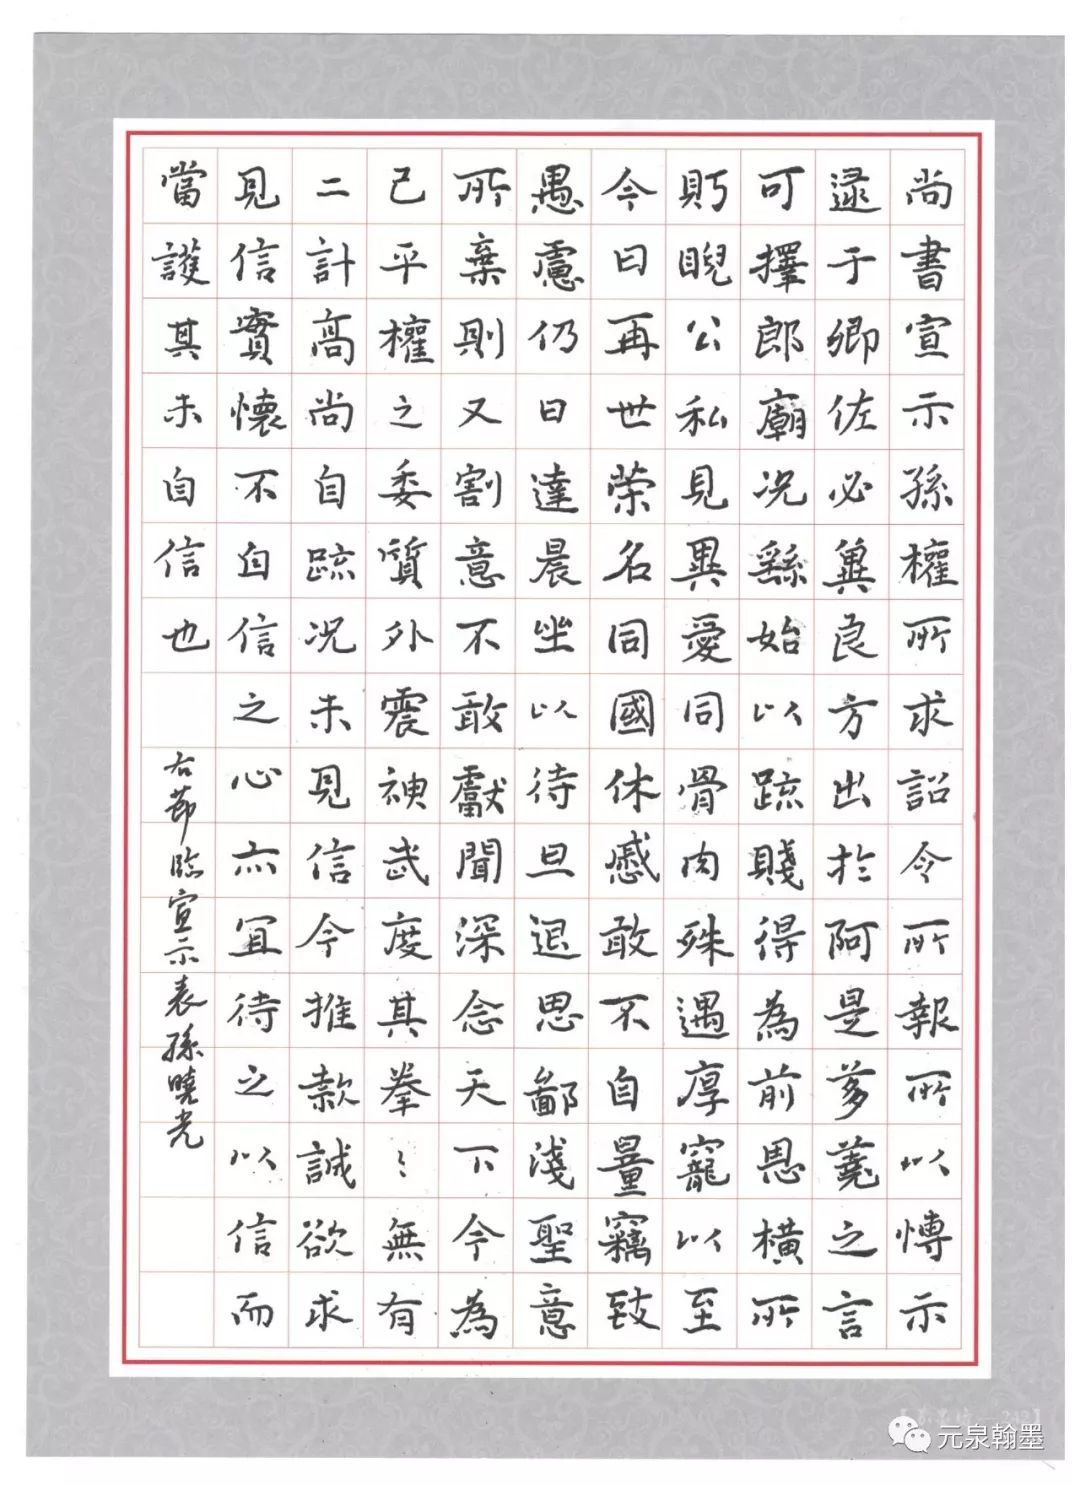 尚書宣示孫權所求詔令所報所以慱示
逮于卿佐必兾良方出於阿是芻蕘之言
可擇郎廟况繇始以疏賤得為前恩橫所
眄睨公私見異愛同骨肉殊遇厚寵以至
今日再世荣名同國休慼敢不自量竊致
愚慮仍日達晨坐以待旦退思鄙淺聖意
所棄則又割意不敢獻聞深念天下今為
已平權之委質外震神武度其拳〻無有
二計高尚自疏况未見信今推款誠欲求
見信實懷不自信之心亦宜待之以信而
當護其未自信也
右節臨宣示表孫曉光
元泉翰墨